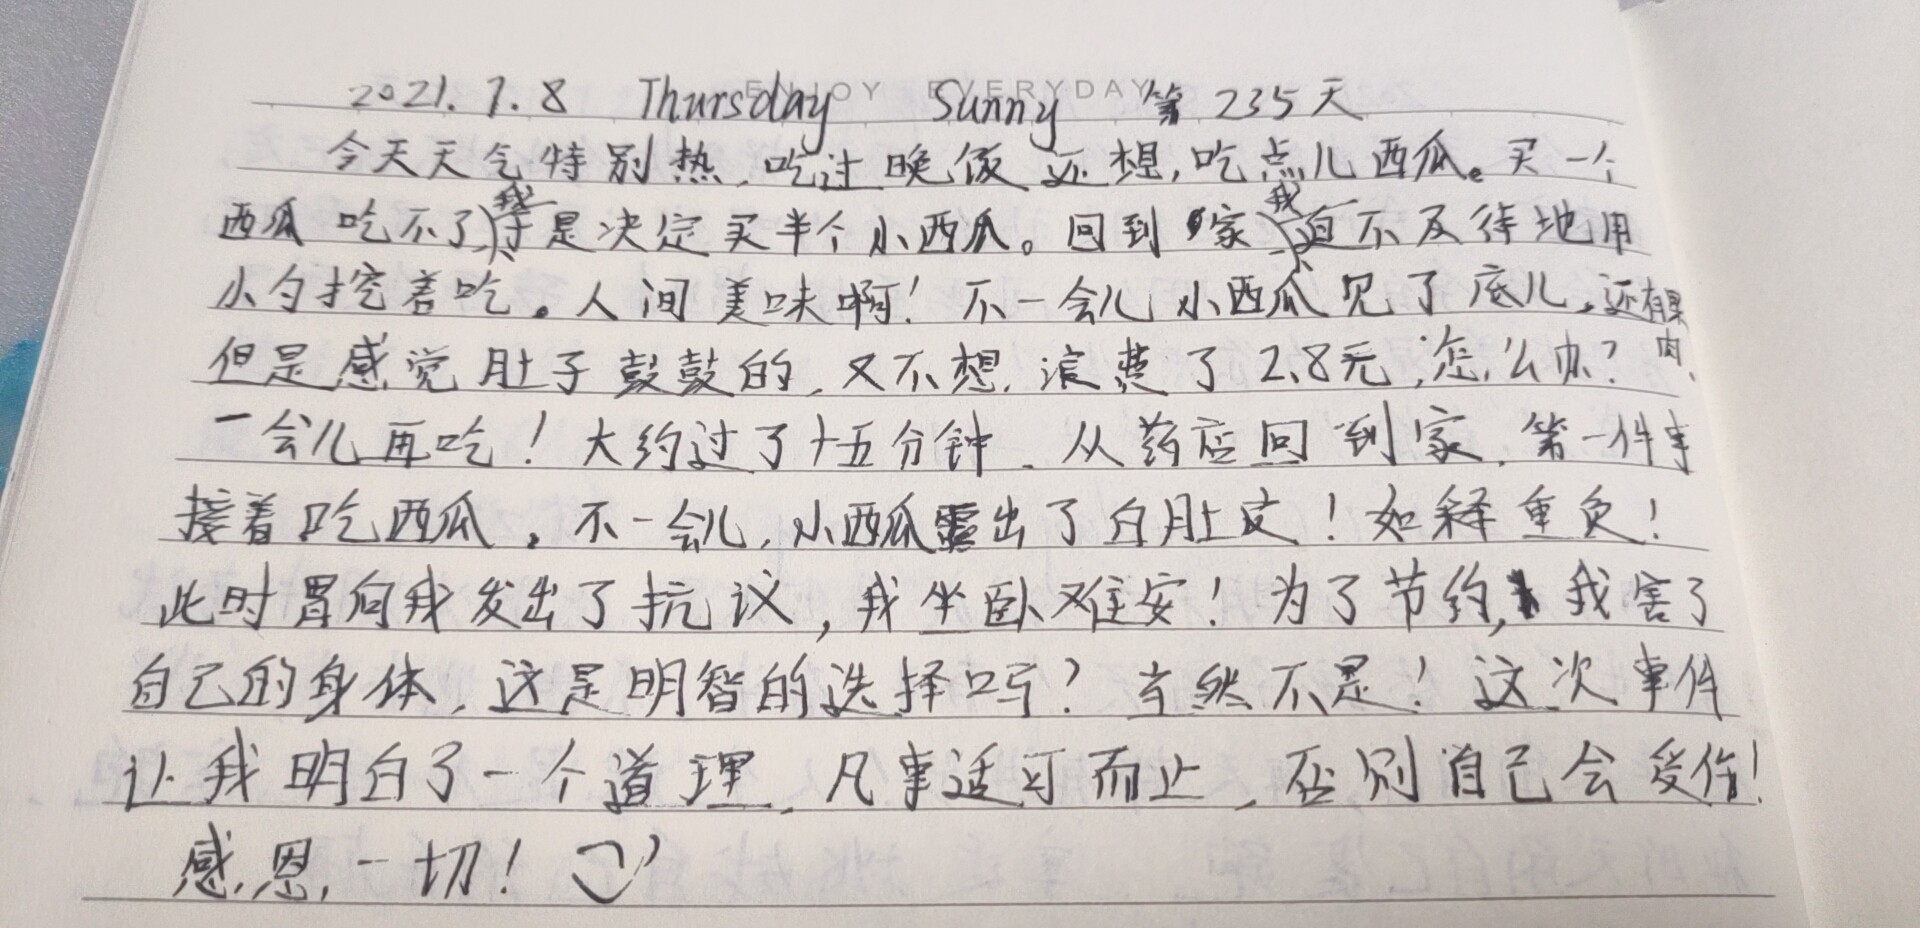 ENJOY EVERYDAY
2021.7.8 Thursday Sunny 第235天
今天天气特别热,吃过晚饭还想吃点儿西瓜。买一个
西瓜吃不了,我于是决定买半个小西瓜。回到家,我迫不及待地用
小勺挖着吃。人间美味啊!不一会儿小西瓜见了底儿,还有果肉,
但是感觉肚子鼓鼓的,又不想浪费了2.8元,怎么办?
一会儿再吃!大约过了十五分钟,从药店回到家,第一件事
接着吃西瓜。不一会儿,小西瓜露出了白肚皮!如释重负!
此时胃向我发出了抗议,我坐卧难安!为了节约,我害了
自己的身体,这是明智的选择吗?当然不是!这次事件
让我明白了一个道理,凡事适可而止,否则自己会受伤!
感恩一切!